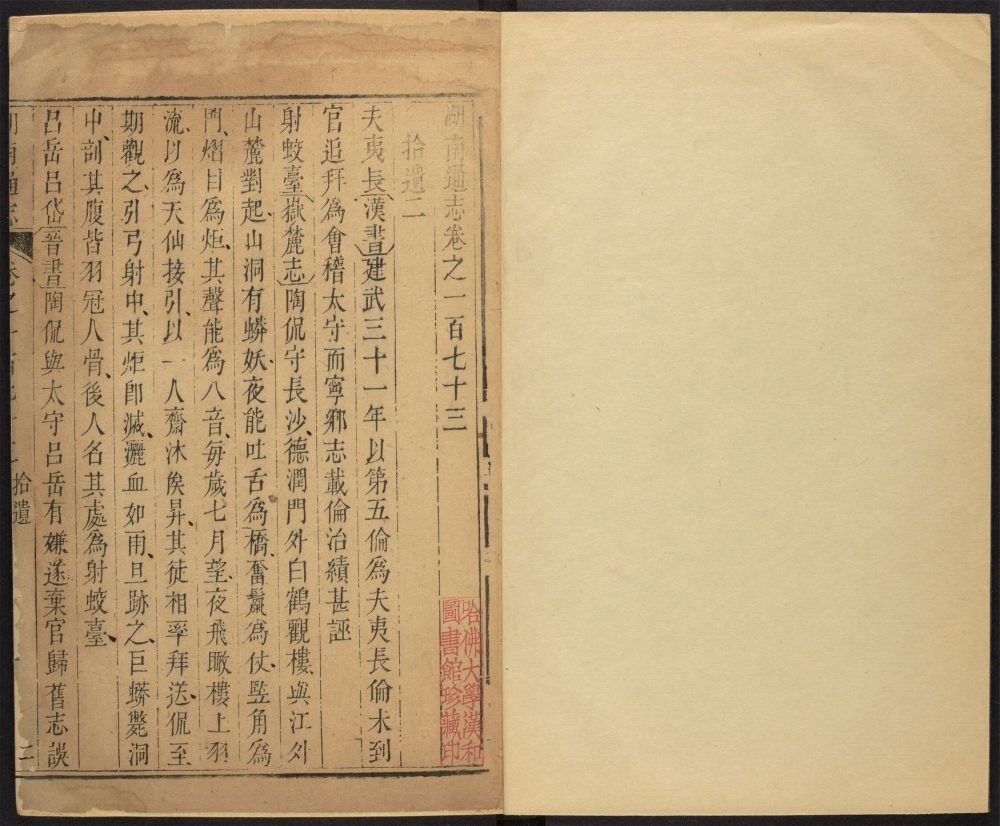 湖南通志卷之一百七十三
拾遺二
夫夷長漢書建武三十一年以第五倫爲夫夷長倫未到
官追拜爲會稽太守而寧鄉志載倫治績甚誣
射蛟臺嶽麓志陶侃守長沙德潤門外白鶴觀樓與江外
山麓對起山洞有蟒妖夜能吐舌爲橋奮鬣爲仗豎角爲
門熠目爲炬其聲能爲八音每歲七月望夜飛瞰樓上羽
流以爲天仙接引以一人齋沐俟昇其徒相率拜送侃至
期觀之引弓射中其炬卽滅灑血如雨旦跡之巨蟒斃洞
中剖其腹皆羽冠人骨後人名其處爲射蛟臺
呂岳呂岱晉書陶侃與太守呂岳有嫌遂棄官歸舊志誤
拾遺
二
哈佛大學漢和
圖書館珍藏印